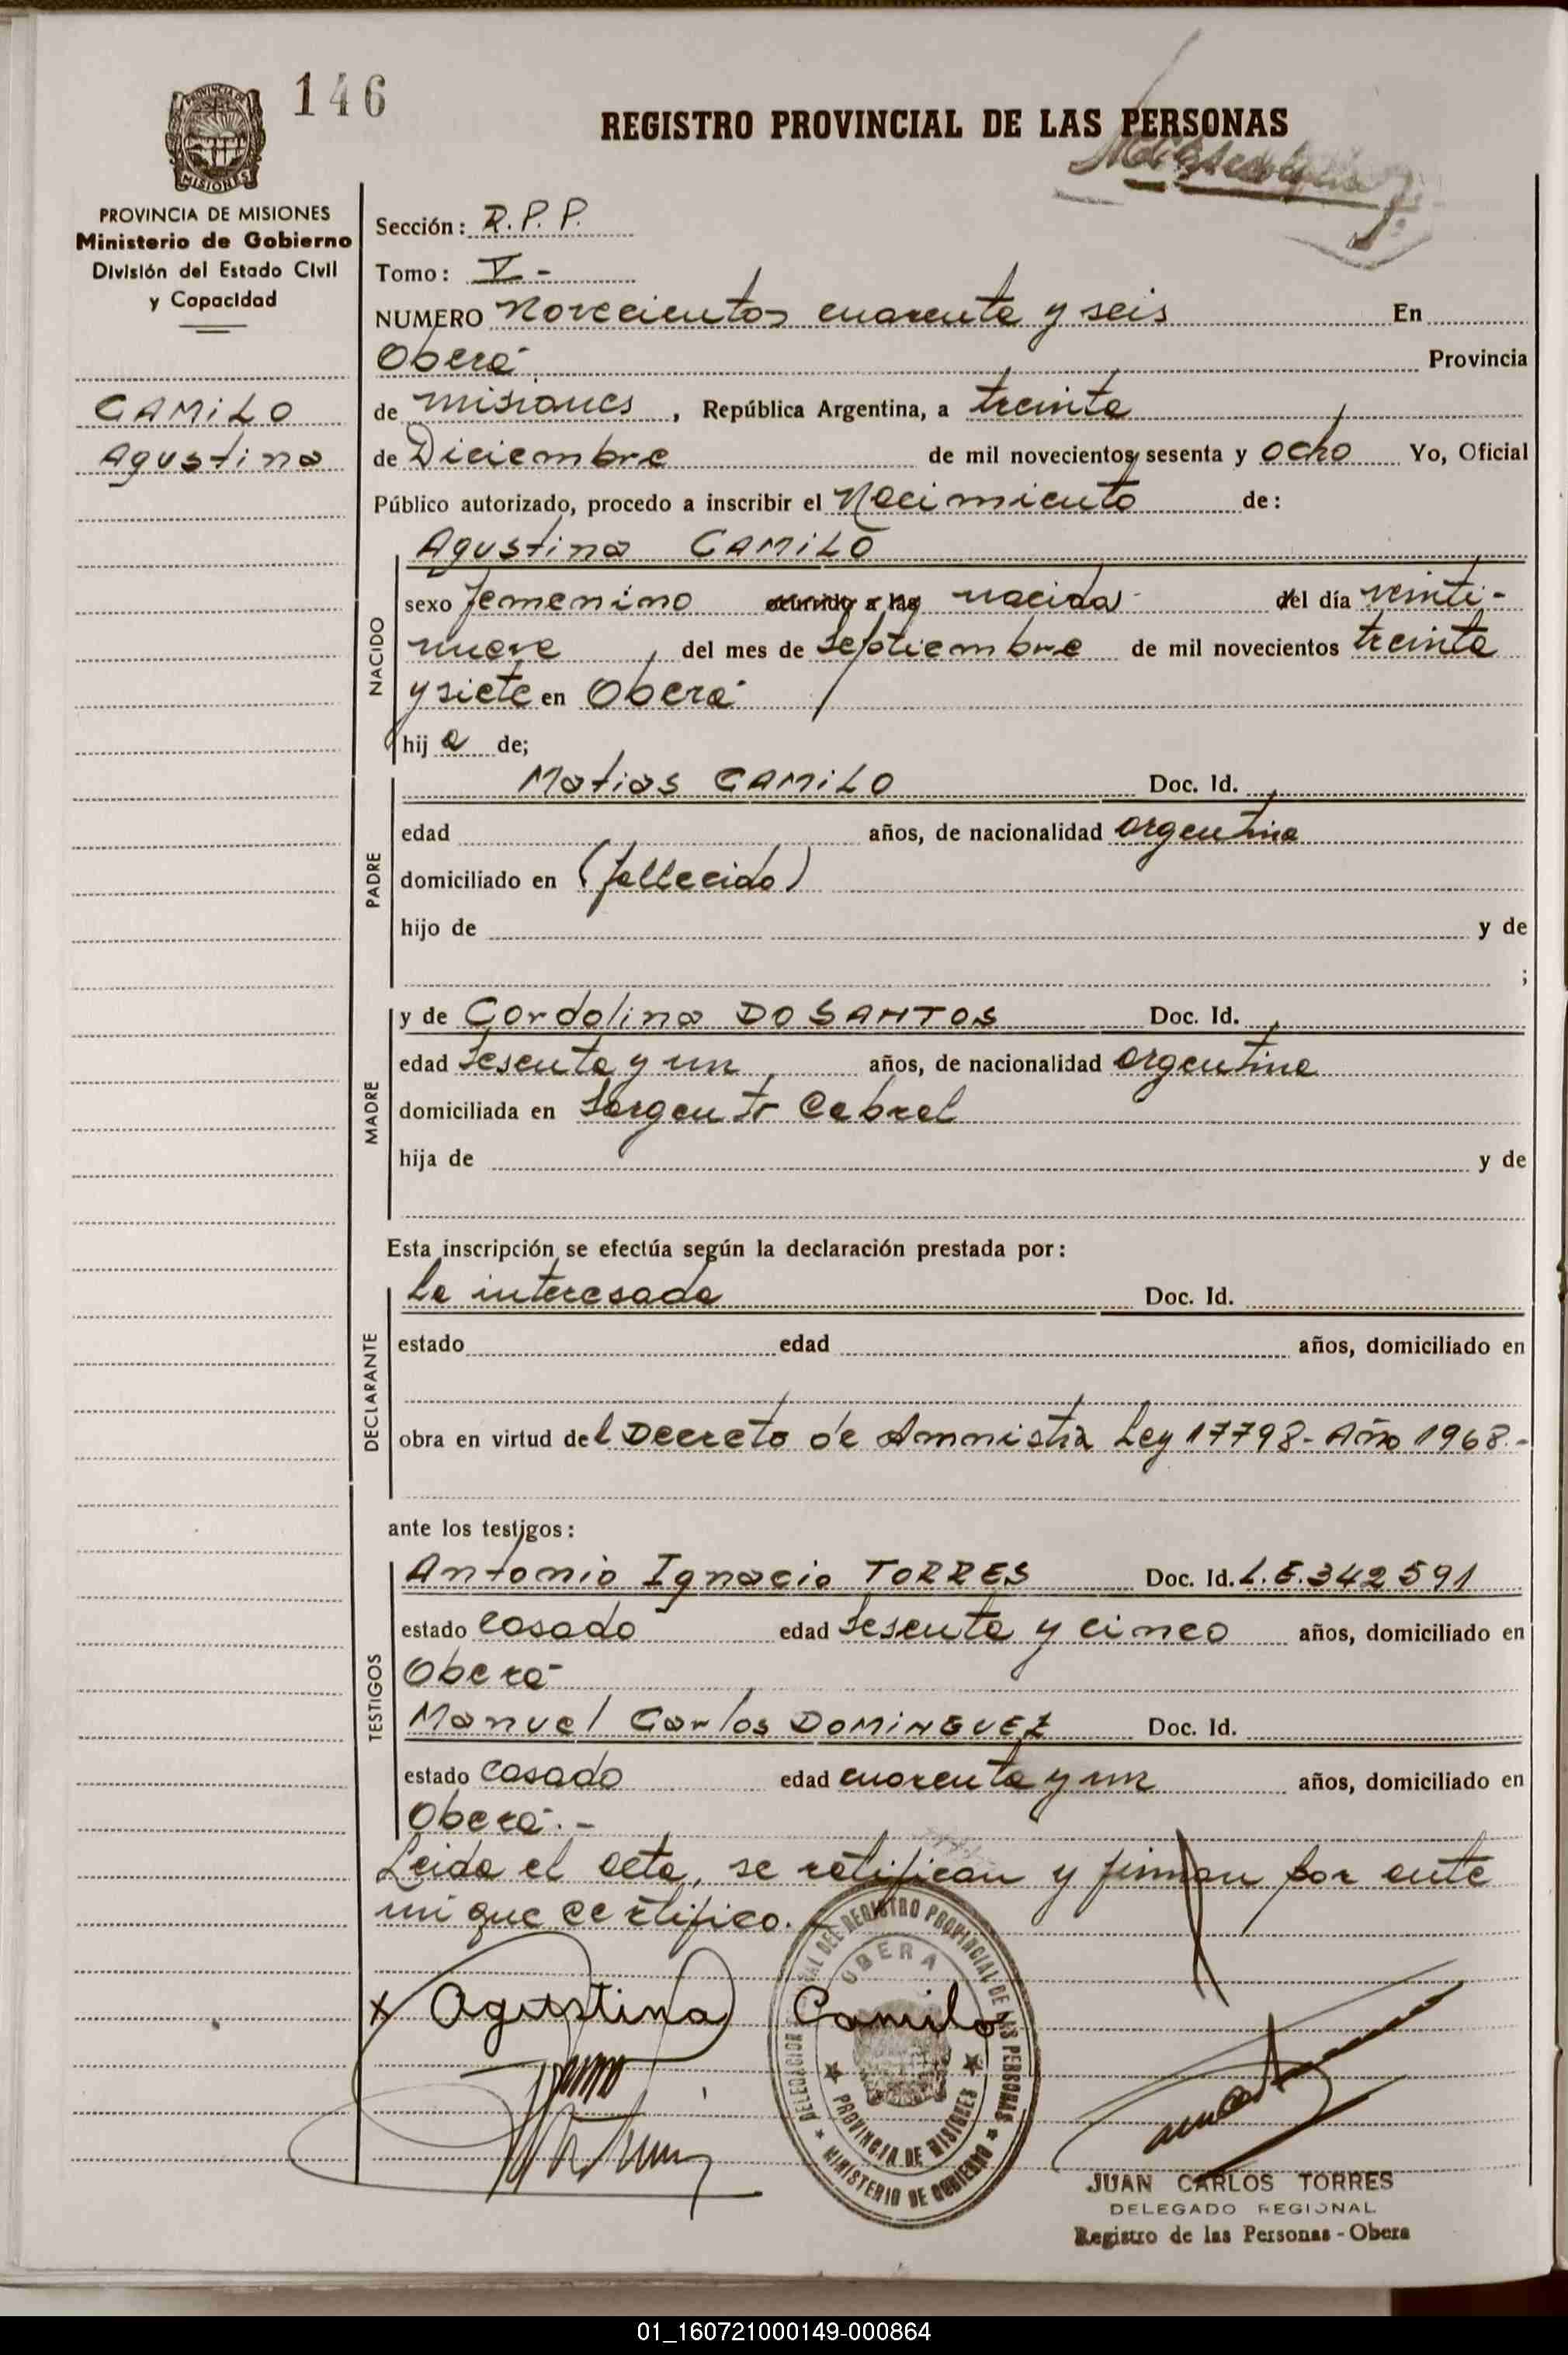 146
REGISTRO PROVINCIAL DE LAS PERSONAS
PROVINCIA DE MISIONES
Ministerio de Gobierno
División del Estado Civil
y Capacidad
CAMILO
Agustina
Sección: R.P.P.
Tomo: V.-
NUMERO Novecientos cuarenta y seis En
Oberá Provincia
de misiones, República Argentina, a treinta
de Diciembre de mil novecientos sesenta y ocho Yo, Oficial
Público autorizado, procedo a inscribir el Nacimiento de:
Agustina CAMILO
NACIDO
sexo femenino ocurrido a las nacida del día veinti-
nueve, del mes de Septiembre de mil novecientos treinta
y siete en Oberá
hij a de;
PADRE
Matias CAMILO Doc. Id.
edad años, de nacionalidad argentina
domiciliado en (fallecido)
hijo de y de
;
MADRE
y de Cordolina DO SANTOS Doc. Id.
edad Sesenta y un años, de nacionalidad argentina
domiciliada en Sargento Cabral
hija de y de
Esta inscripción se efectúa según la declaración prestada por:
DECLARANTE
La interesada Doc. Id.
estado edad años, domiciliado en
obra en virtud del Decreto de Amnistia Ley 17798- Año 1968.-
ante los testigos:
TESTIGOS
Antonio Ignacio TORRES Doc. Id. L.E. 342591
estado casado edad sesenta y cinco años, domiciliado en
Oberá
Manuel Carlos DOMINGUEZ Doc. Id.
estado casado edad cuarenta y un años, domiciliado en
Oberá.-
Leida el acta, se ratifican y firman por ante
mi que certifico.-
x Agustina Camilo
DELEGACION DEL REGISTRO PROVINCIAL DE LAS PERSONAS
OBERA
PROVINCIA DE MISIONES
MINISTERIO DE GOBIERNO
JUAN CARLOS TORRES
DELEGADO REGIONAL
Registro de las Personas - Obera
01_160721000149-000864